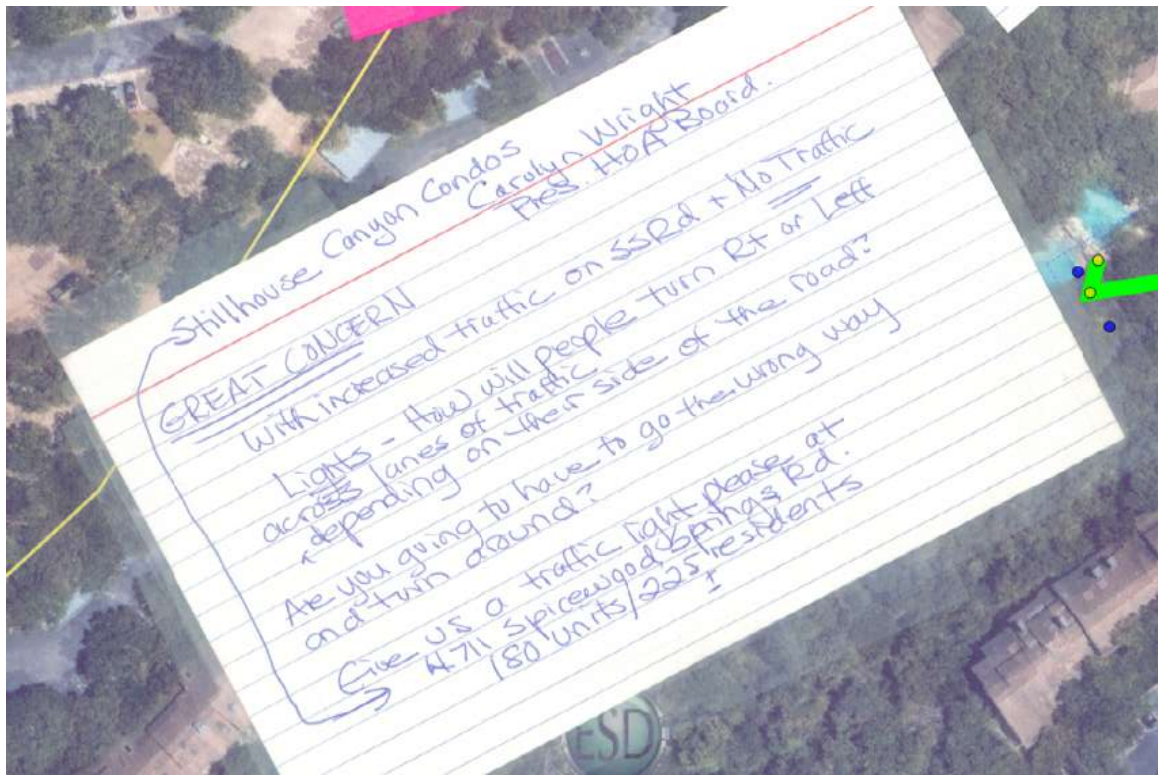 Stillhouse Canyon Condos
Carolyn Wright
Pres. HOA Board.
GREAT CONCERN
with increased traffic on SSRd + No Traffic
Lights - How will people turn Rt or Left
across lanes of traffic
depending on their side of the road?
Are you going to have to go the wrong way
and turn around?
Give us a traffic light please at
4711 Spicewood Springs Rd.
180 units/225 residents
±
ESD